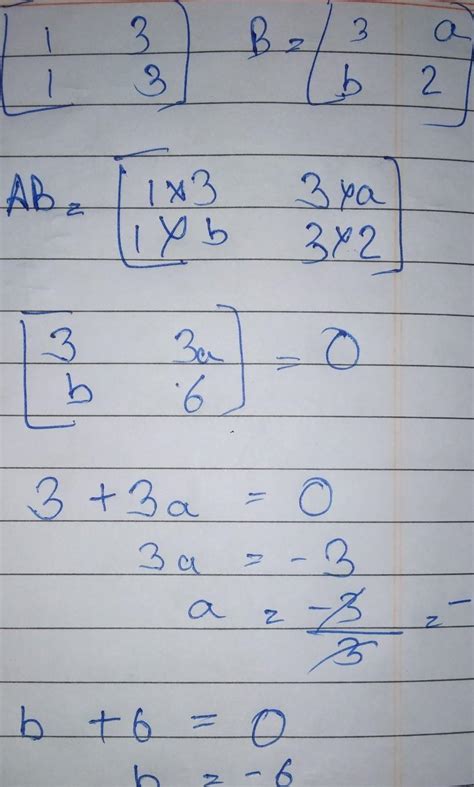 [1 3] B = [3 a]
[1 3] [b 2]
AB = [1×3 3×a]
[1×b 3×2]
[3 3a] = 0
[b 6]
3 + 3a = 0
3a = -3
a = -3/3 = -
b + 6 = 0
b = -6